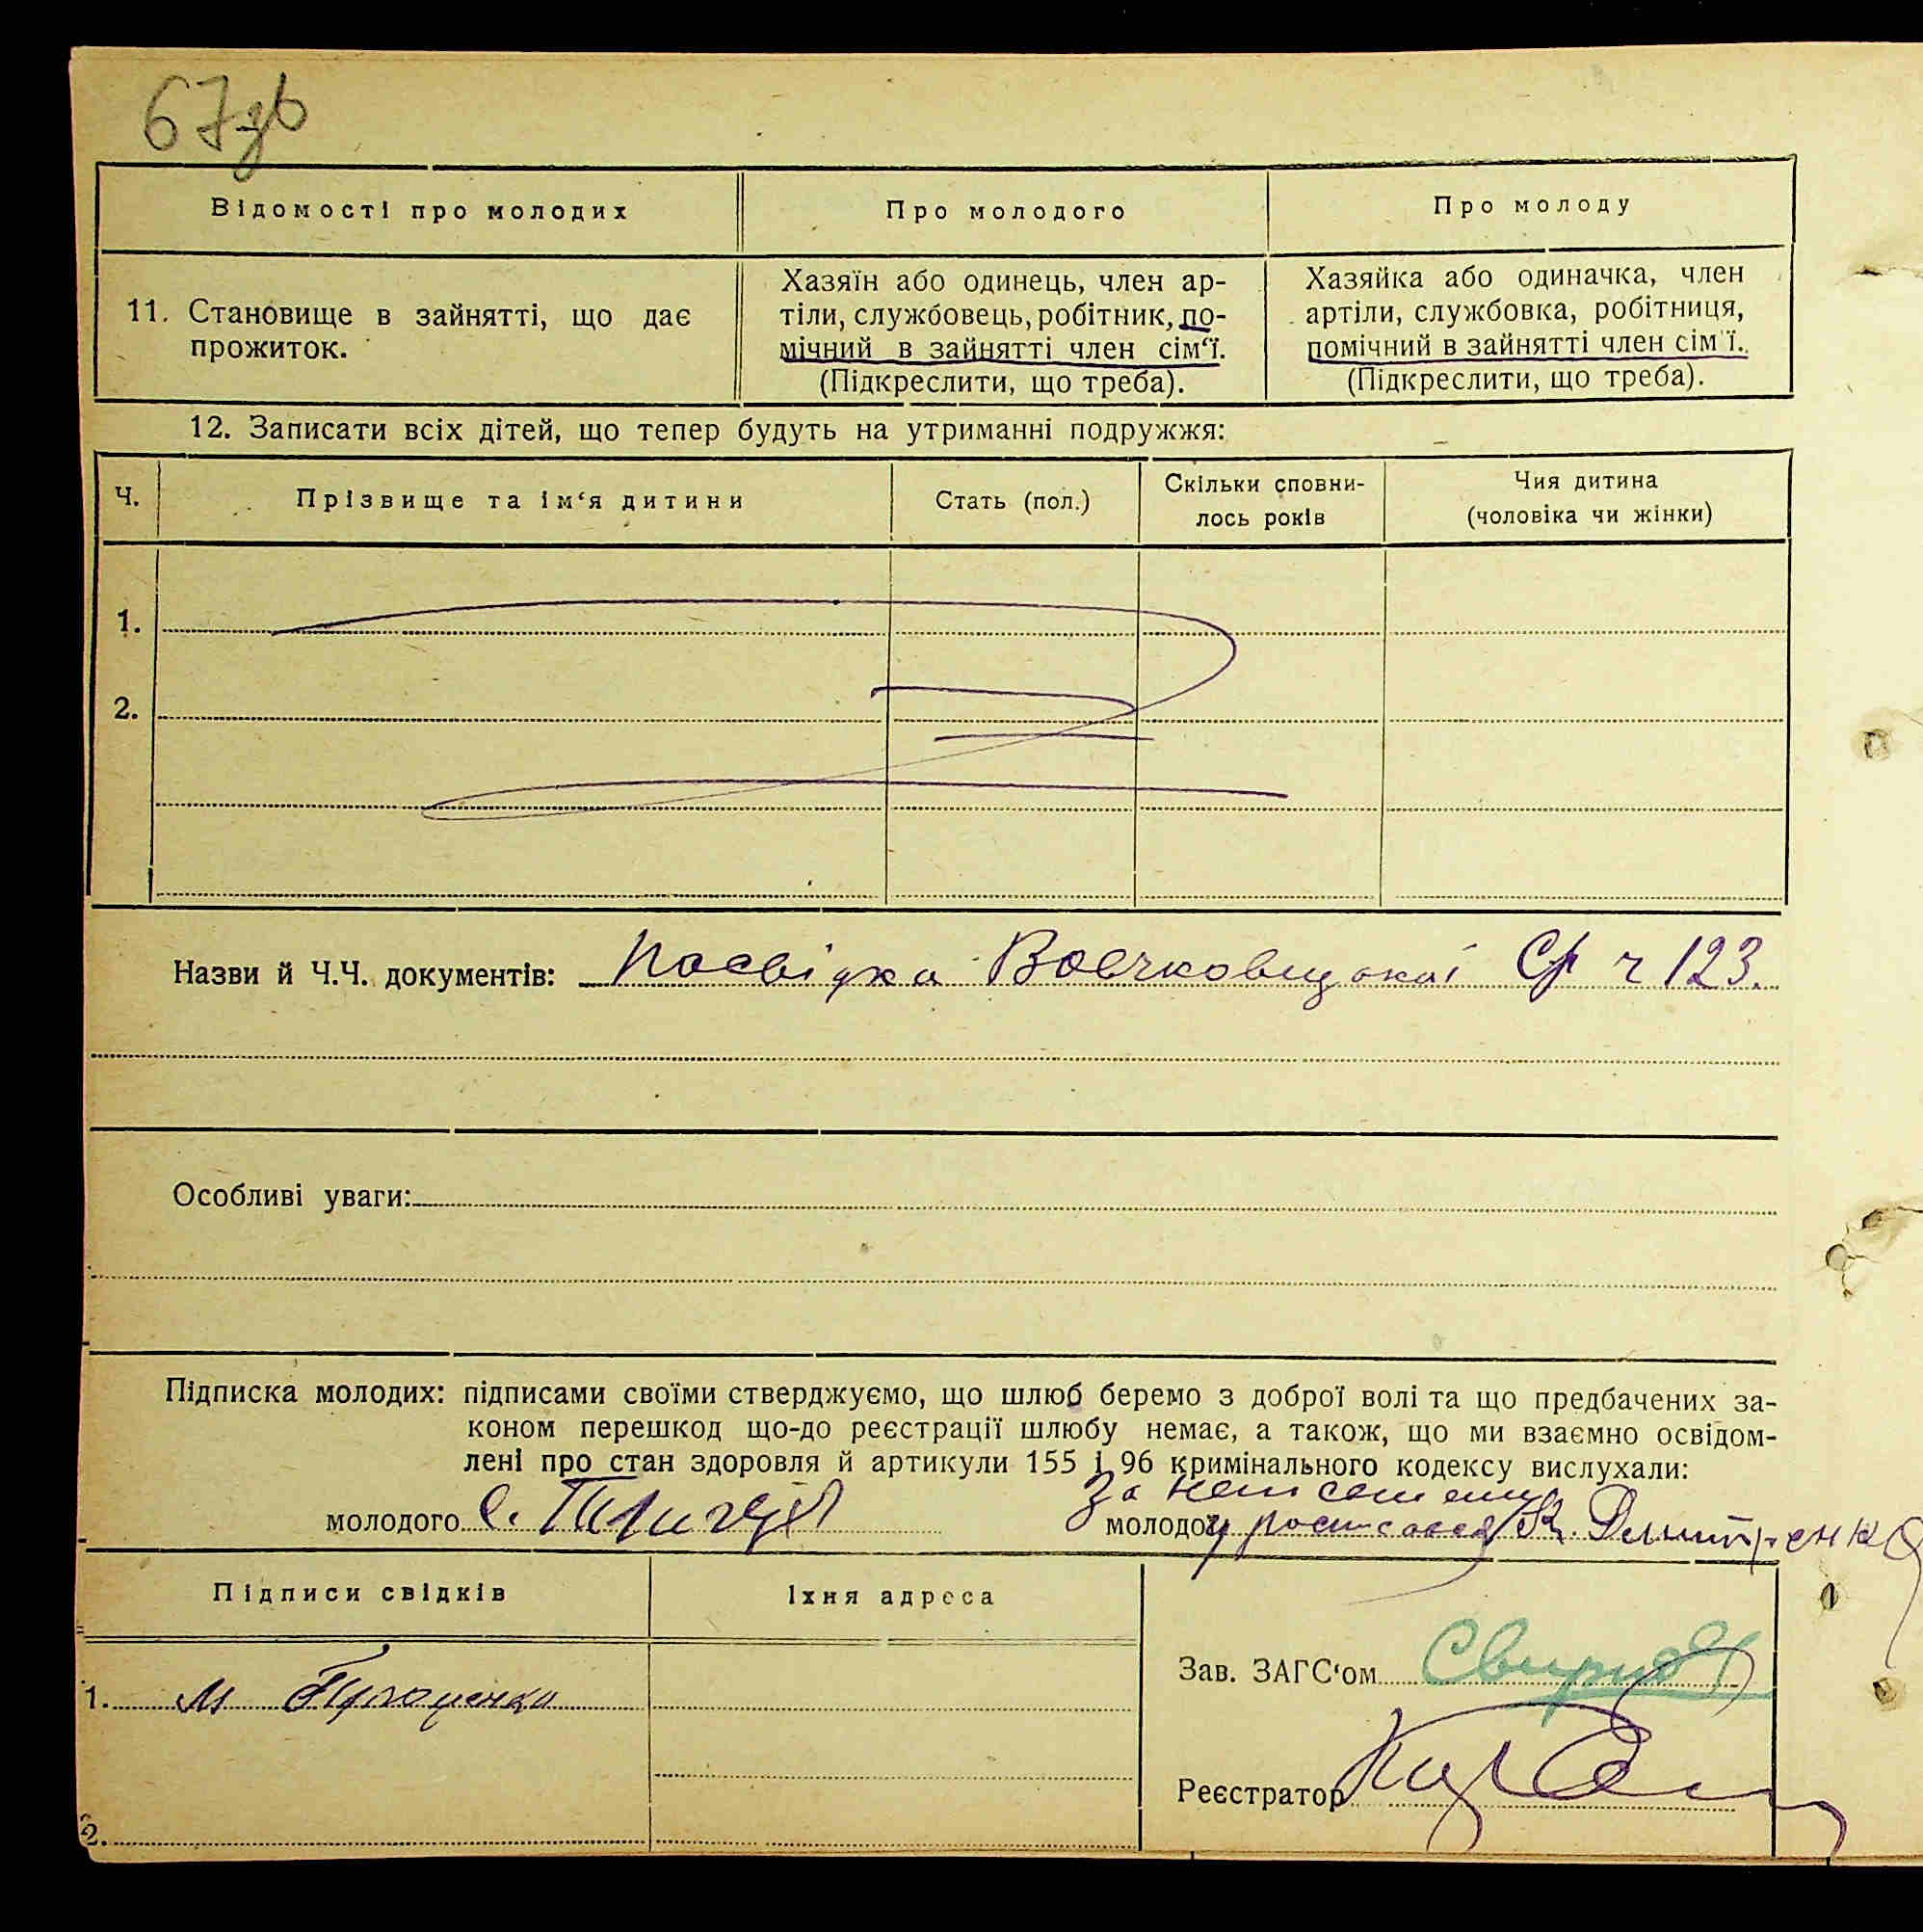 67зв
Відомості про молодих
Про молодого
Про молоду
11. Становище в зайнятті, що дає
прожиток.
Хазяїн або одинець, член ар-
тіли, службовець, робітник, по-
мічний в зайнятті член сім‘ї.
(Підкреслити, що треба).
Хазяйка або одиначка, член
артіли, службовка, робітниця,
помічний в зайнятті член сім'ї.
(Підкреслити, що треба).
12. Записати всіх дітей, що тепер будуть на утриманні подружжя:
Ч.
Прізвище та ім‘я дитини
Стать (пол.)
Скільки сповни-
лось років
Чия дитина
(чоловіка чи жінки)
1.
2.
Назви й Ч.Ч. документів: Посвідка Вовчковцької Ср ч 123.
Особливі уваги:
Підписка молодих: підписами своїми стверджуємо, що шлюб беремо з доброї волі та що предбачених за-
коном перешкод що-до реєстрації шлюбу немає, а також, що ми взаємно освідом-
лені про стан здоровля й артикули 155 і 96 кримінального кодексу вислухали:
За
молодого С.
молодої К. Дмитренко
Підписи свідків
Їхня адреса
1. М
2.
Зав. ЗАГС‘ом
Реєстратор